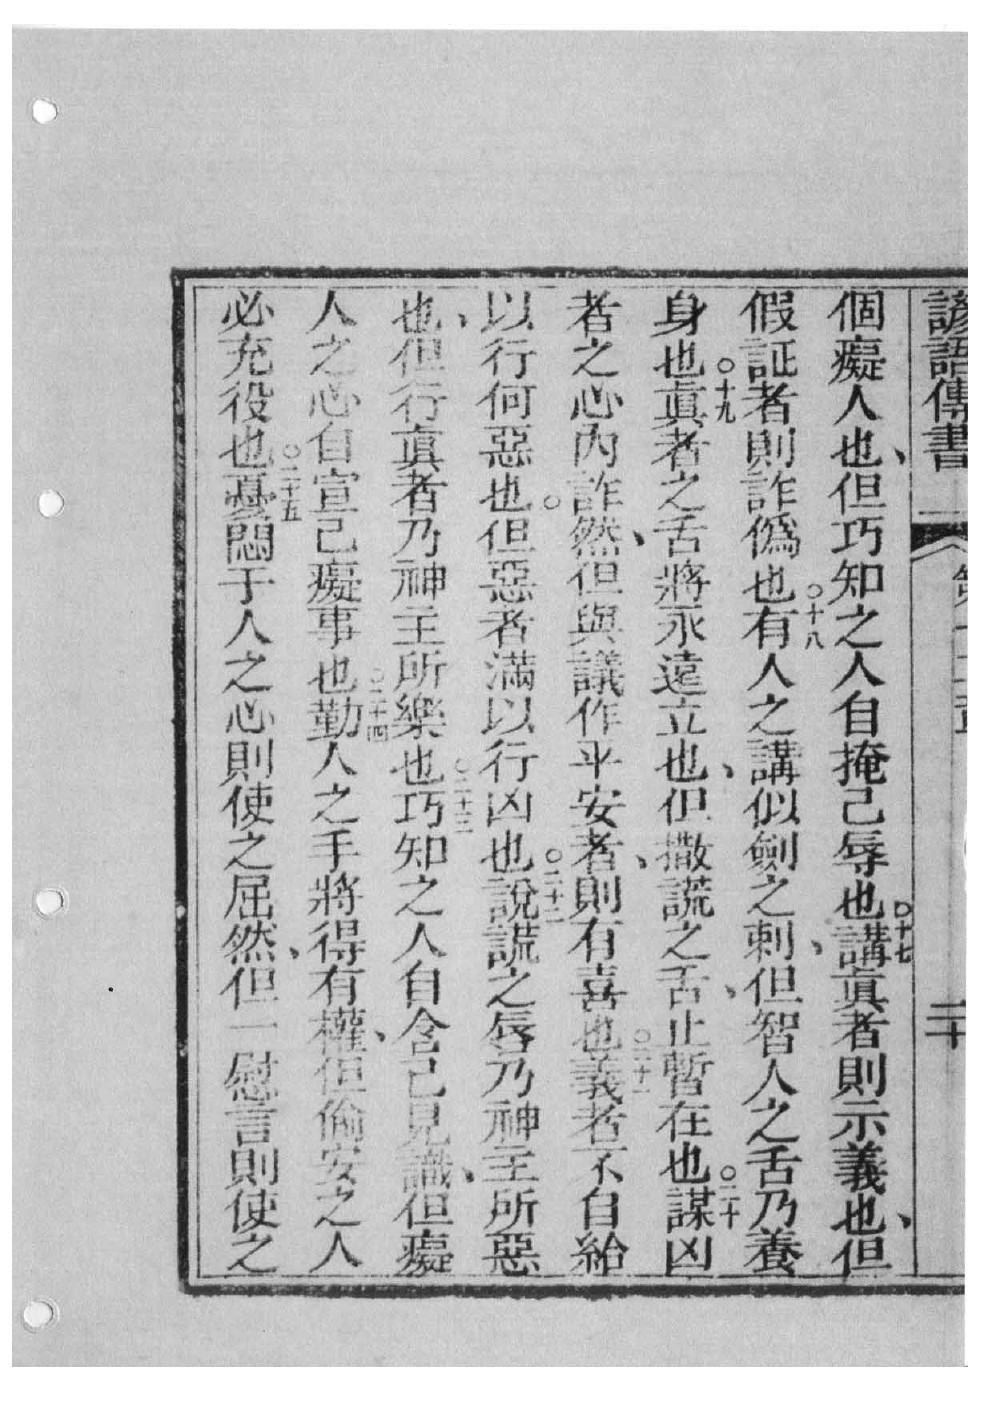 諺語傳書 二十
個癡人也、但巧知之人自掩己辱也○十七講眞者則示義也、但
假証者則詐僞也○十八有人之講似劍之刺、但智人之舌乃養
身也○十九眞者之舌將永遠立也、但撒謊之舌、止暫在也○二十謀凶
者之心內詐然、但與議作平安者、則有喜也○二十一義者不自給
以行何惡也○但惡者滿以行凶也○二十二說謊之辱乃神主所惡
也、但行眞者乃神主所樂也○二十三巧知之人自含己見識、但癡
人之心自宣己癡事也○二十四勤人之手將得有權、但偷安之人
必充役也○二十五憂悶于人之心則使之屈然、但一慰言則使之